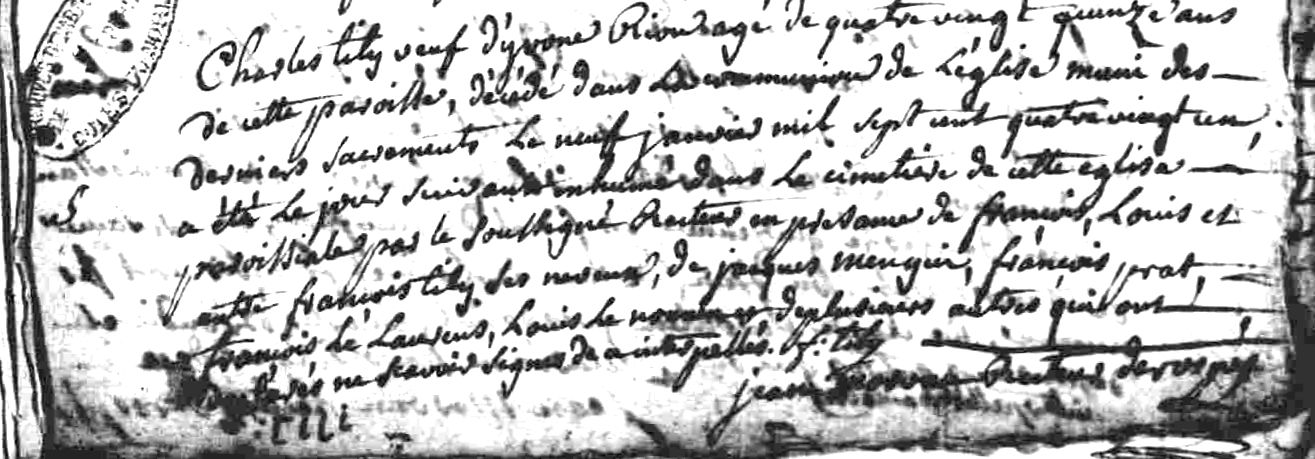 Charles tily veuf d'yvone Riou agé de quatre vingt quinze ans
de cette paroisse, décédé dans la communion de L'église muni des
derniers sacrements Le neuf janvier mil sept cent quatre vingt un,
a été Le jour suivant inhumé dans Le cimetière de cette eglise
paroissiale par le soussigné Recteur en presance de françois, Louis et
autre françois tily ses neveux, de jacques menguir, françois prat,
francois Le Laurens, Louis Le et deplusieurs autres qui ont
déclarés ne scavoir signer de ce interpellés. f: tily
jean Recteur